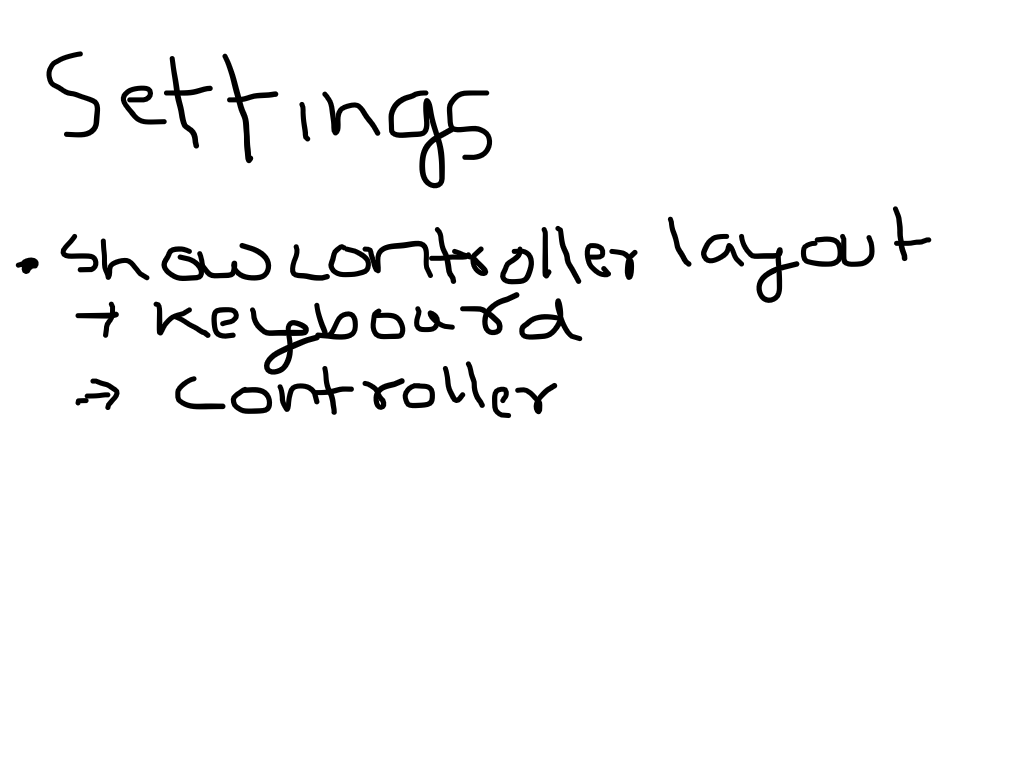 Settings
• Show controller layout
→ Keyboard
→ Controller